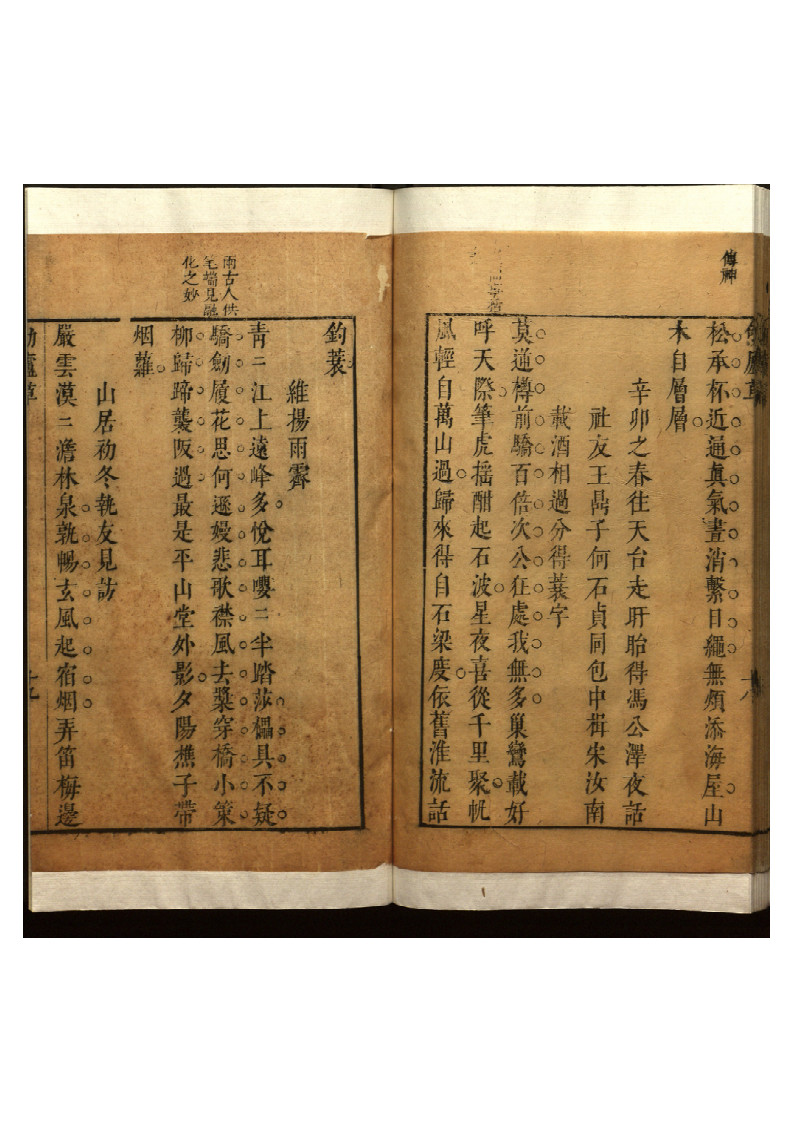 傳神
松承杯近通真氣晝消繫日繩無煩添海屋山
木自層層
辛卯之春往天台走盱眙得馮公澤夜話
社友王咼子何石貞同包中楫宋汝南
載酒相過分得蓑字
莫通樽前驕百倍次公狂處我無多巢鸞載好
呼天際筆虎搖酣起石波星夜喜從千里聚帆
風輕自萬山過歸來得自石梁度依舊淮流話
釣蓑
維揚雨霽
兩古人供
毛端見融
化之妙
青〻江上遠峰多悅耳嚶〻半踏莎櫑具不疑
驕劒履花思何遜嫚悲歌襟風去槳穿橋小策
柳歸蹄襲阪過最是平山堂外影夕陽樵子帶
烟蘿
山居初冬執友見訪
嚴雲漠〻澹林泉孰暢玄風起宿烟弄笛梅邊